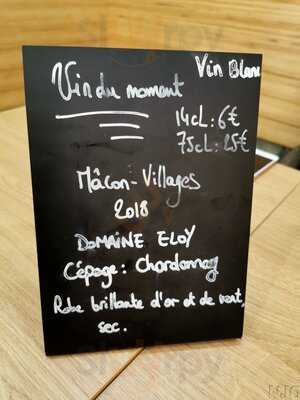 Vin Blanc
Vin du moment
14cl : 6€
75cl : 25€
Mâcon-Villages
2018
DOMAINE ELOY
Cépage : Chardonnay
Robe brillante d'or et de vert,
sec.